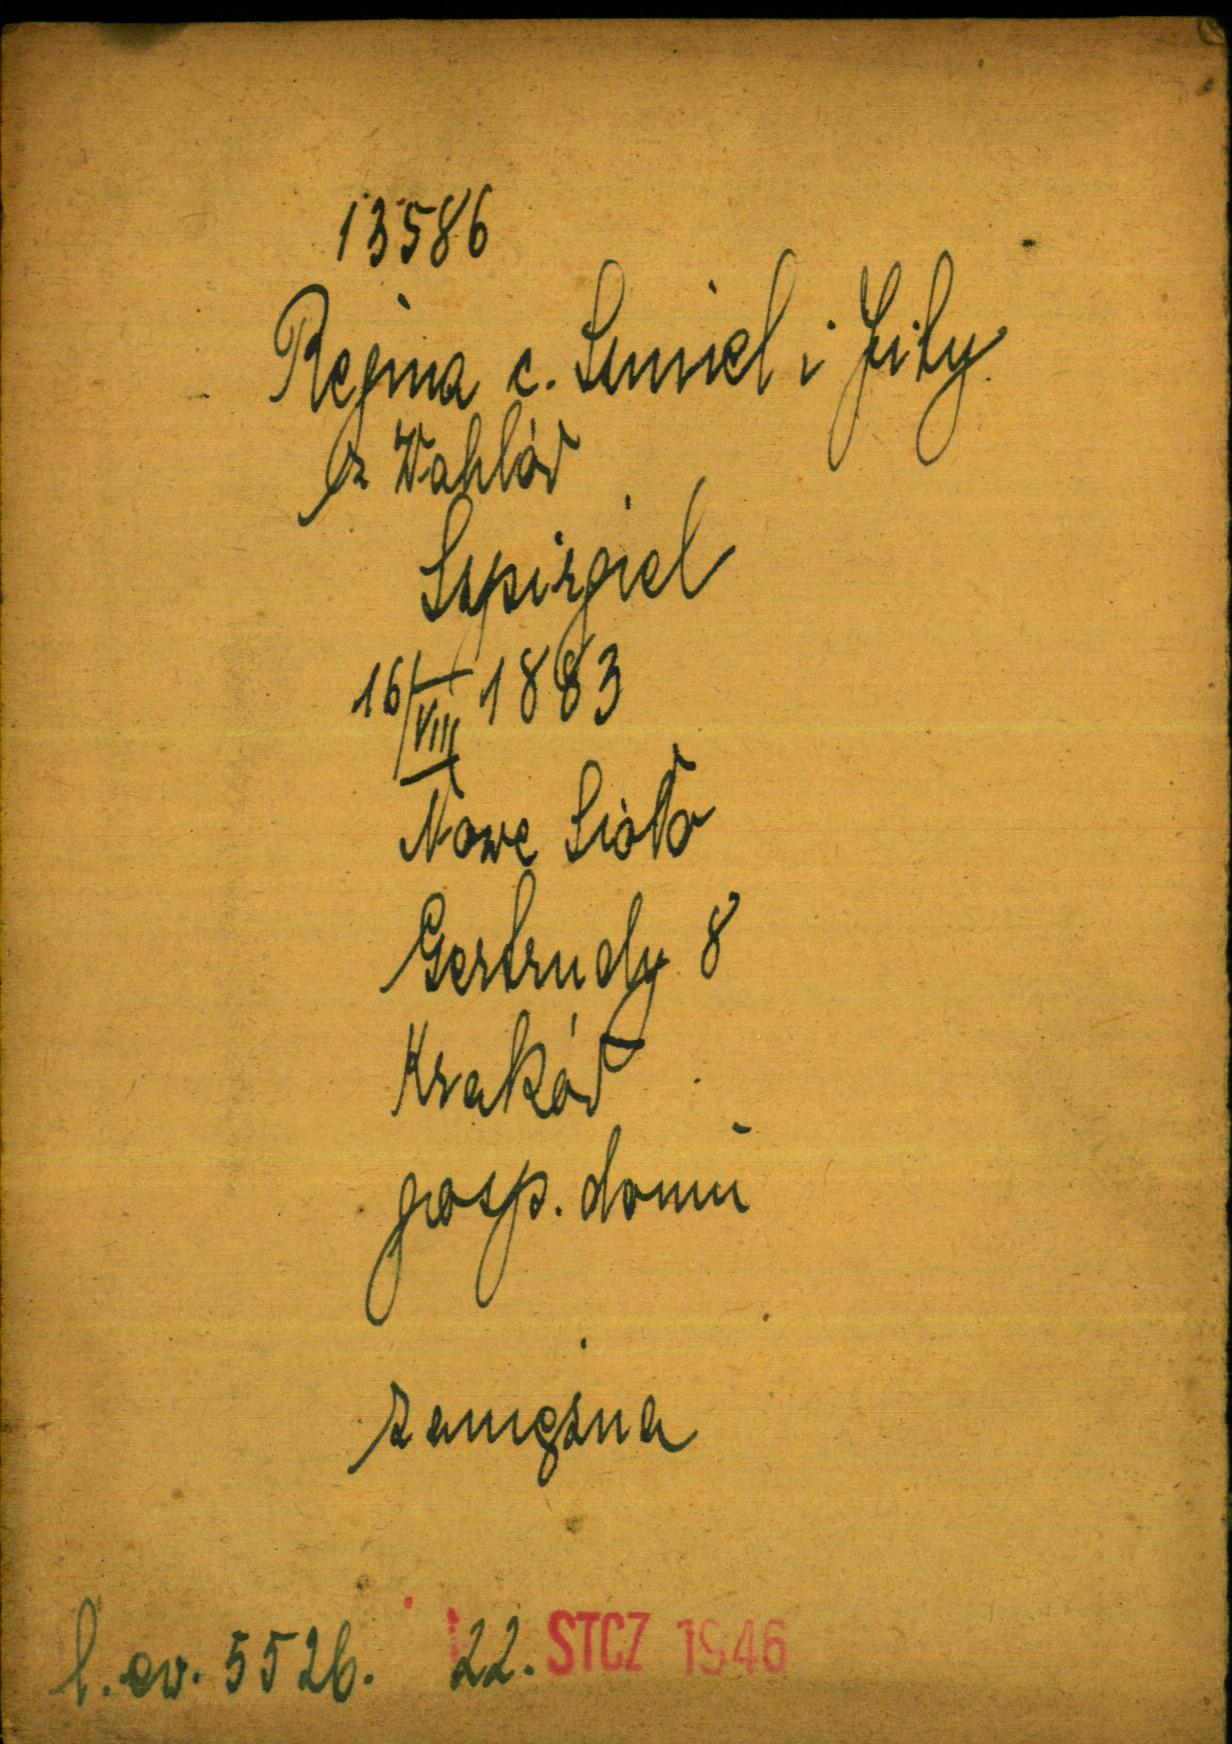 13586
Regina c. Szmiel i Gity
z Wahlów
Szpirgiel
16/VIII 1883
Nowe Sioło
Gertrudy 8
Kraków
gosp. domu
zamężna
l. ew. 5526. 22. STCZ 1946